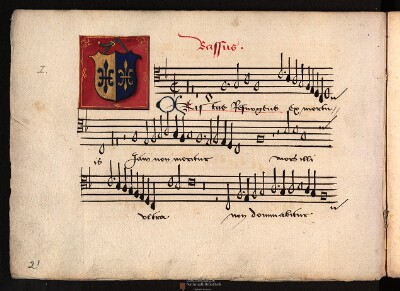 Bassus.
1.
Cristus Resurgens ex mortu
is Iam non moritur mors illi
vltra non dominabitur
2